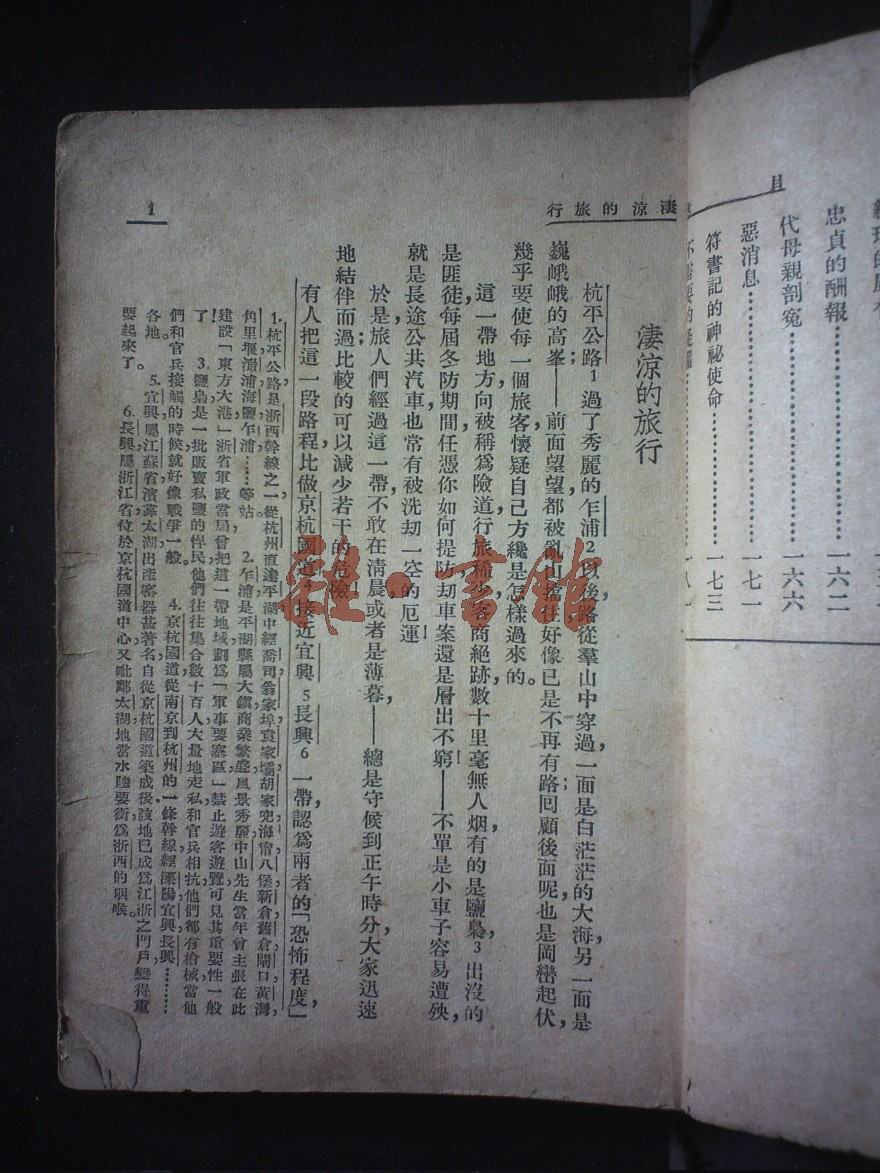 目
忠貞的酬報…………一六二
代母親剖冤…………一六六
惡消息…………一七一
符書記的神祕使命…………一七三
凄涼的旅行
1
凄涼的旅行
杭平公路1過了秀麗的乍浦2以後,路從羣山中穿過,一面是白茫茫的大海,另一面是
巍峨峨的高峯——前面望望,都被亂山擋住,好像已是不再有路;回顧後面呢,也是岡巒起伏,
幾乎要使每一個旅客懷疑自己方纔是怎樣過來的。
這一帶地方,向被稱爲險道,行旅稀少,客商絕跡,數十里毫無人烟,有的是鹽梟3出沒的,
是匪徒每屆冬防期間,任憑你如何提防,刧車案還是層出不窮!——不單是小車子容易遭殃,
就是長途公共汽車,也常有被洗刧一空的厄運!
於是旅人們經過這一帶,不敢在清晨,或者是薄暮——總是守候到正午時分,大家迅速
地結伴而過;比較的可以減少若干的危險!
有人把這一段路程,比做京杭國道4接近宜興5長興6一帶,認爲兩者的「恐怖程度」,
1.杭平公路是浙西幹線之一,從杭州直達平湖,中經喬司,翁家埠,袁家壩,胡家兜,海甯,八堡,新倉,舊倉,閘口,黃灣,
角里堰,澉浦,海鹽,乍浦……等站。 2.乍浦是平湖縣屬大鎮,商業繁盛,風景秀麗,中山先生當年曾主張在此
建設「東方大港」,浙省軍政當局曾把這一帶地域,劃爲「軍事要塞區」,禁止遊客遊覽,可見其重要性一般
了。 3.鹽梟是一批販賣私鹽的悍民,他們往往集合數十百人,大量地走私,和官兵相抗,他們都有槍械,當他
們和官兵接觸的時候,就好像戰爭一般。 4.京杭國道從南京到杭州的一條幹線,經溧陽,宜興,長興………
各地。 5.宜興屬江蘇省,濱靠太湖,出產窰器甚著名,自從京杭國道築成後,該地已成爲江浙之門戶,變得重
要起來了。 6.長興屬浙江省,位於京杭國道中心,又毗鄰太湖,地當水陸要衝,爲浙西的咽喉。
雜·書館